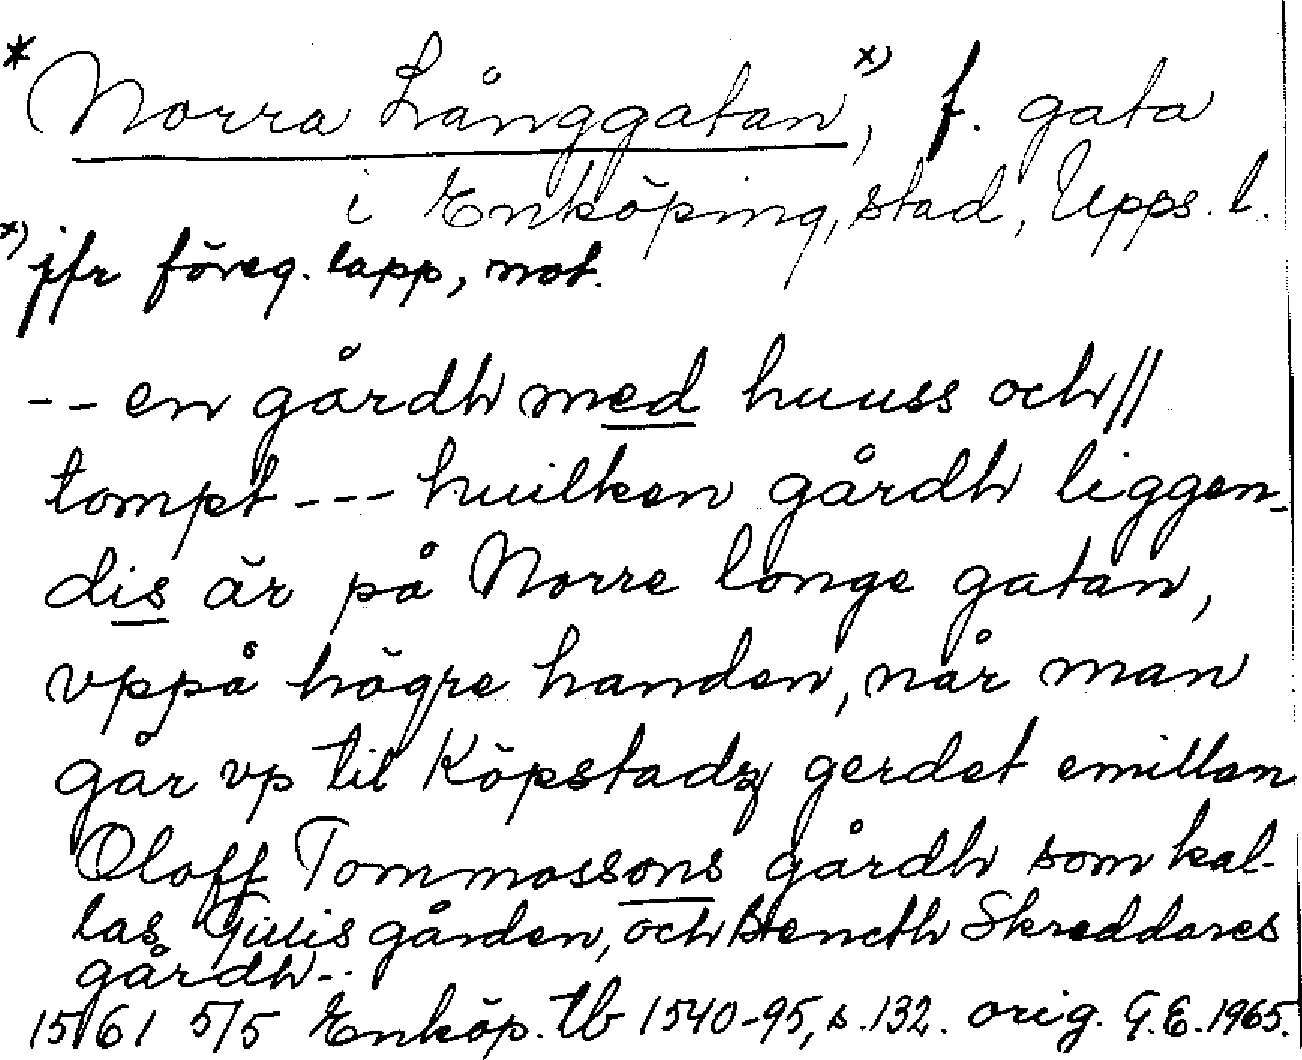 * Norra Långgatan x), f. gata
i Enköping, stad, Upps. l.
x) jfr föreg. lapp, not.
-- en gårdh med huuss och //
tompt --- huilken gårdh liggen-
dis är på Norre longe gatan,
vppå högre handen, når man
går vp til Köpstadz gerdet emillan
Oloff Tommossons gårdh som kal-
las gården, och Bencth Skreddares
gårdh --
1561 5/5 Enköp. tb 1540-95, s. 132. orig. G.E. 1965.